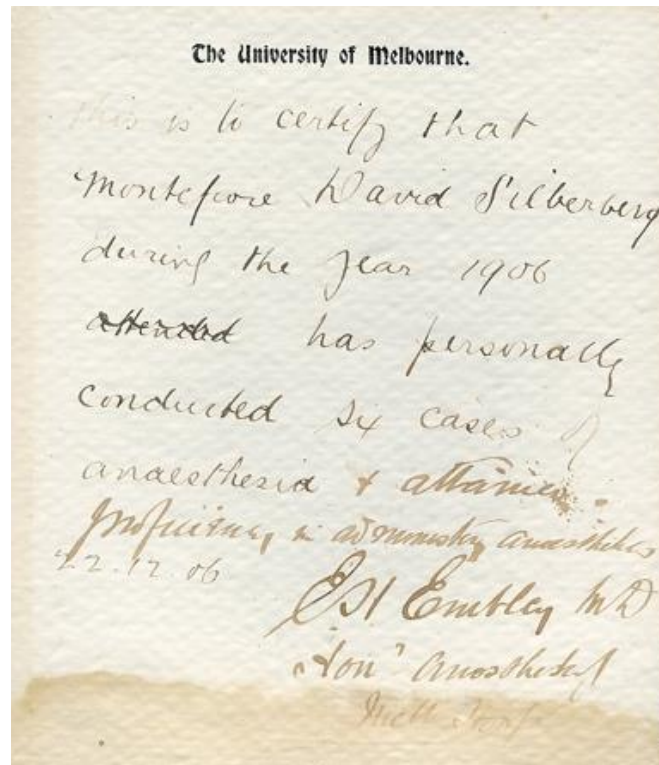 The University of Melbourne.
This is to certify that
Montefiore David Silberberg
during the year 1906
attended has personally
conducted six cases of
anaesthesia & attained
proficiency in administering anaesthetics
22.12.06
E H Embley MD
Hon
Melb Hosp